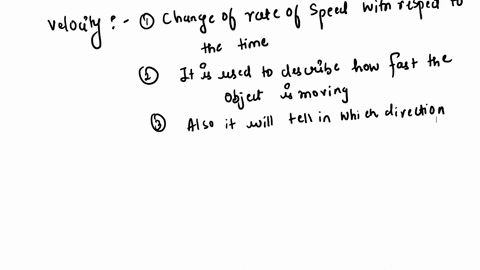 Velocity :- ① Change of rate of Speed with respect to
the time
② It is used to describe how fast the
Object is moving
③ Also it will tell in which direction